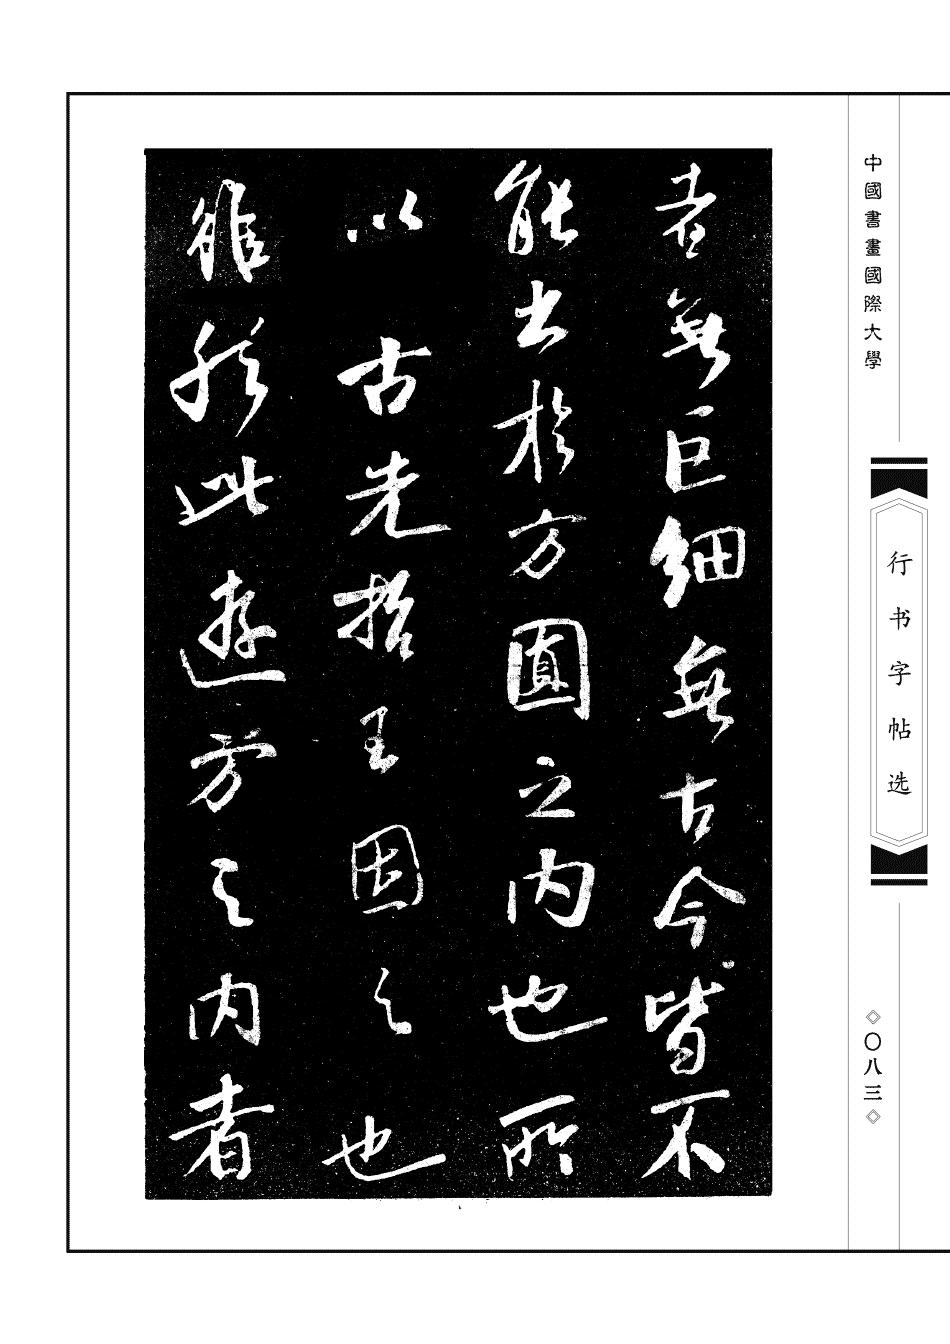 中國書畫國際大學
行书字帖选
〇八三
者無巨細無古今皆不
能出於方圓之内也所
以古先哲王因之也
雖然此遊方之内者